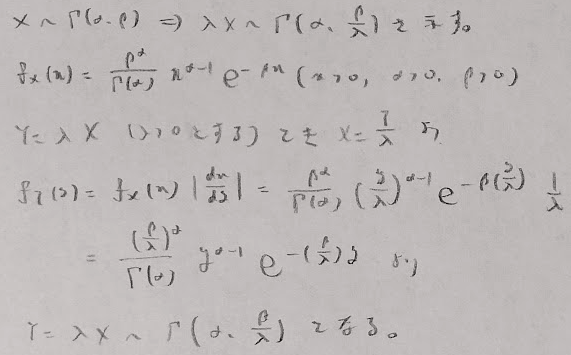 X ~ Γ(α, β) ⇒ λX ~ Γ(α, β/λ) を示す。
f_X(x) = β^α/Γ(α) x^(α-1) e^(-βx) (x>0, α>0, β>0)
Y = λX (λ>0とする) とき X = Y/λ より
f_Y(y) = f_X(x) |dx/dy| = β^α/Γ(α) (y/λ)^(α-1) e^(-β(y/λ)) 1/λ
= (β/λ)^α/Γ(α) y^(α-1) e^(-(β/λ)y) より
Y = λX ~ Γ(α, β/λ) となる。